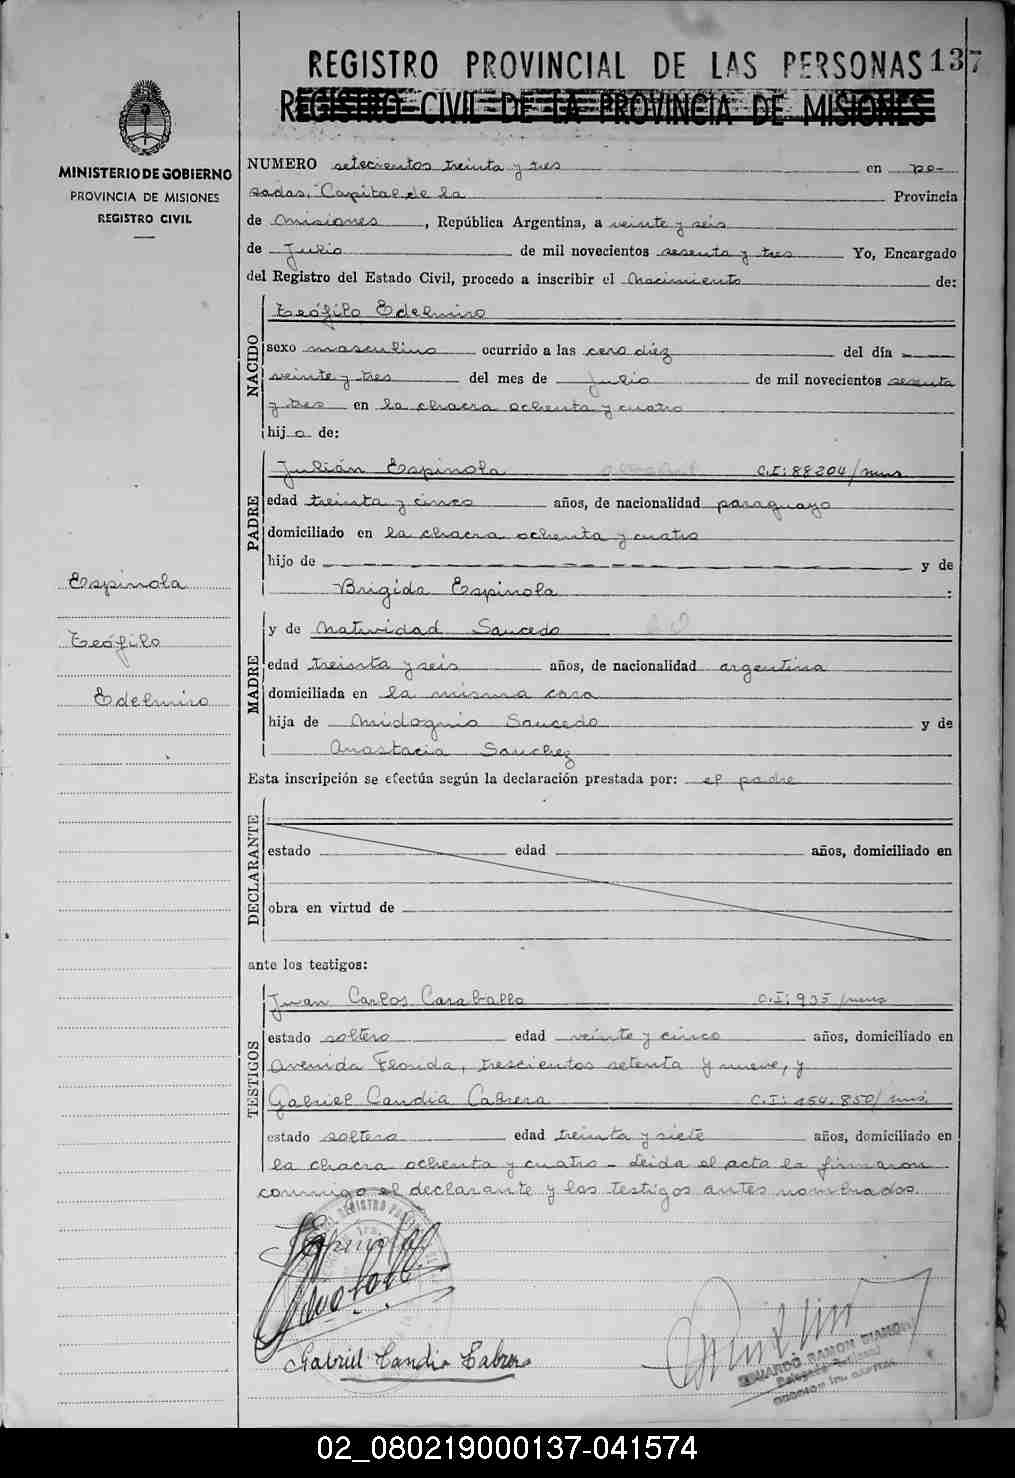 REGISTRO PROVINCIAL DE LAS PERSONAS 137
REGISTRO CIVIL DE LA PROVINCIA DE MISIONES
MINISTERIO DE GOBIERNO
PROVINCIA DE MISIONES
REGISTRO CIVIL
NUMERO setecientos treinta y tres en Po-
sadas, Capital de la Provincia
de Misiones, República Argentina, a veinte y seis
de Julio de mil novecientos sesenta y tres Yo, Encargado
del Registro del Estado Civil, procedo a inscribir el Nacimiento de:
NACIDO
Teófilo Edelmiro
sexo masculino ocurrido a las cero diez del día
veinte y tres del mes de Julio de mil novecientos sesenta
y tres en la chacra ochenta y cuatro
hijo de:
PADRE
Julián Espinola C.I: 88204/mns
edad treinta y cinco años, de nacionalidad paraguayo
domiciliado en la chacra ochenta y cuatro
hijo de y de
Brigida Espinola :
Espinola
Teófilo
Edelmiro
MADRE
y de Natividad Saucedo
edad treinta y seis años, de nacionalidad argentina
domiciliada en la misma casa
hija de Saucedo y de
Anastacia Sanchez
Esta inscripción se efectúa según la declaración prestada por: el padre
DECLARANTE
estado edad años, domiciliado en
obra en virtud de
ante los testigos:
TESTIGOS
Juan Carlos Caraballo C.I: 935/mns
estado soltero edad veinte y cinco años, domiciliado en
Avenida Florida, trescientos setenta y nueve, y
Gabriel Candia Cabrera C.I: 154.850/mns.
estado soltero edad treinta y siete años, domiciliado en
la chacra ochenta y cuatro - Leida el acta la firmaron
conmigo el declarante y los testigos antes nombrados.
JEspinola
Gabriel Candia Cabrera
EDUARDO RAMON
Delegado
02_080219000137-041574